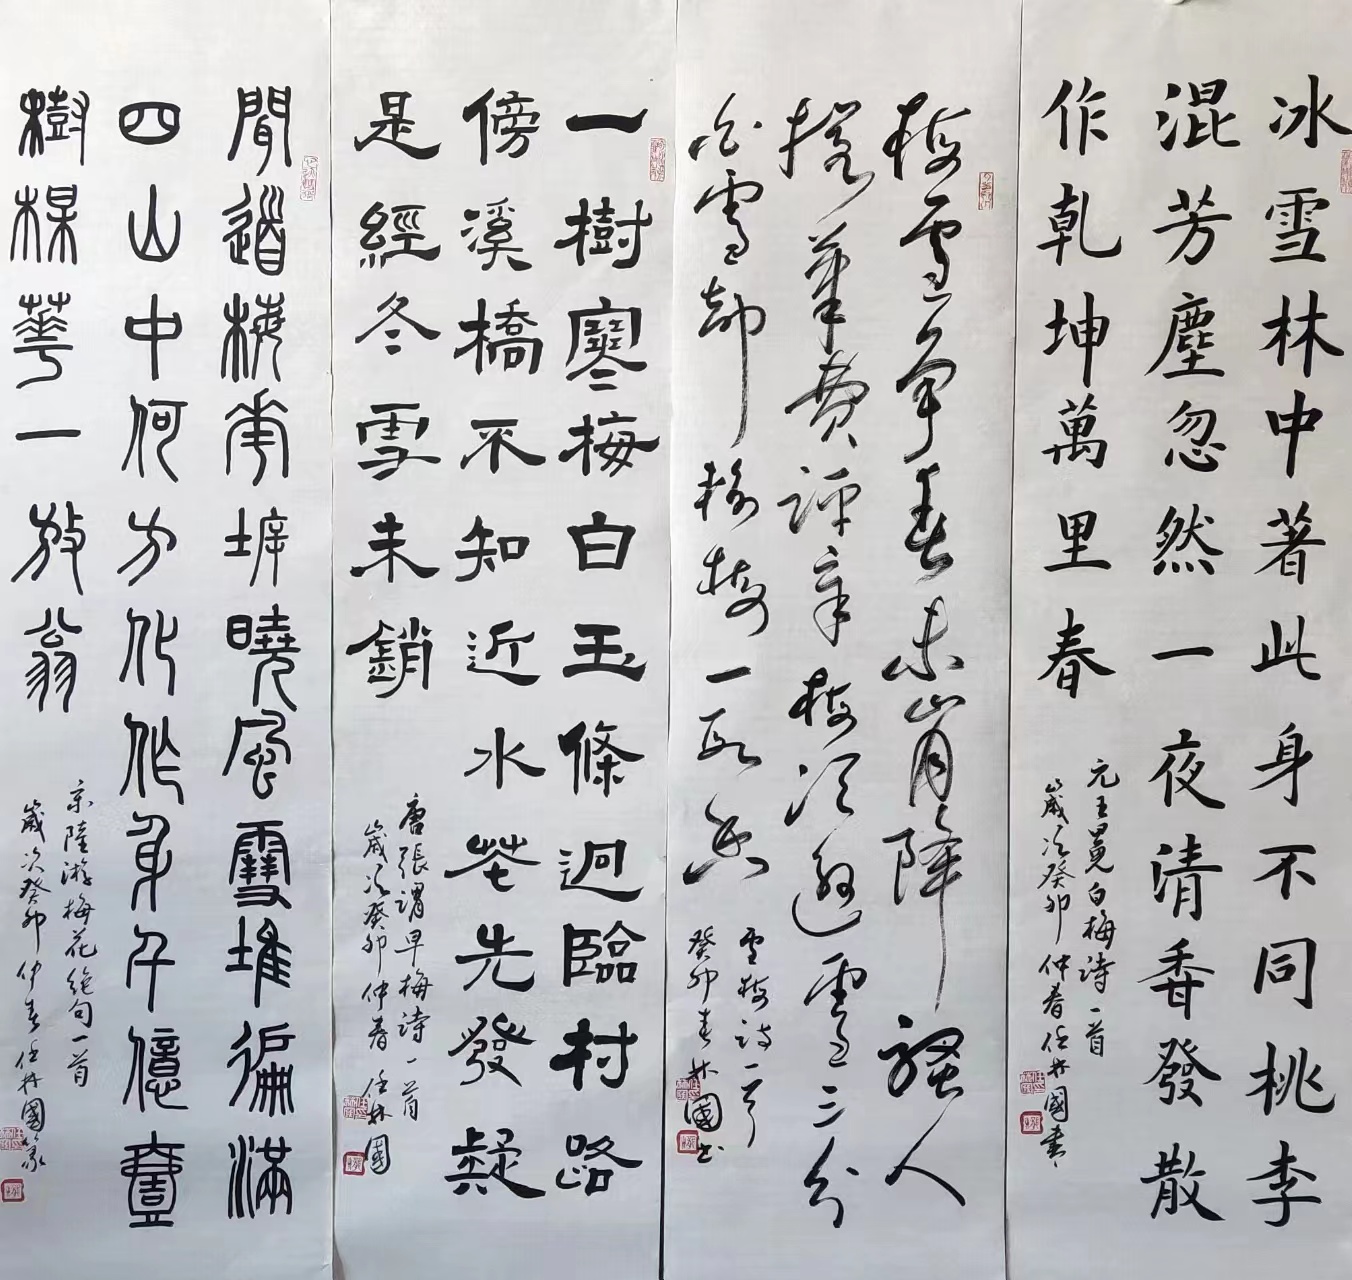 冰雪林中著此身不同桃李
混芳塵忽然一夜清香發散
作乾坤萬里春
元王冕白梅詩一首
歲次癸卯仲春任林國書
梅雪爭春未肯降騷人
擱筆費評章梅須遜雪三分
白雪卻輸梅一段香
雪梅詩一首
癸卯春林國書
一樹寒梅白玉條迥臨村路
傍溪橋不知近水花先發疑
是經冬雪未銷
唐張謂早梅詩一首
歲次癸卯仲春任林國
聞道梅花坼曉風雪堆徧滿
四山中何方化作身千億壹
樹楳華一放翁
宋陸游梅花絕句一首
歲次癸卯仲春任林國篆